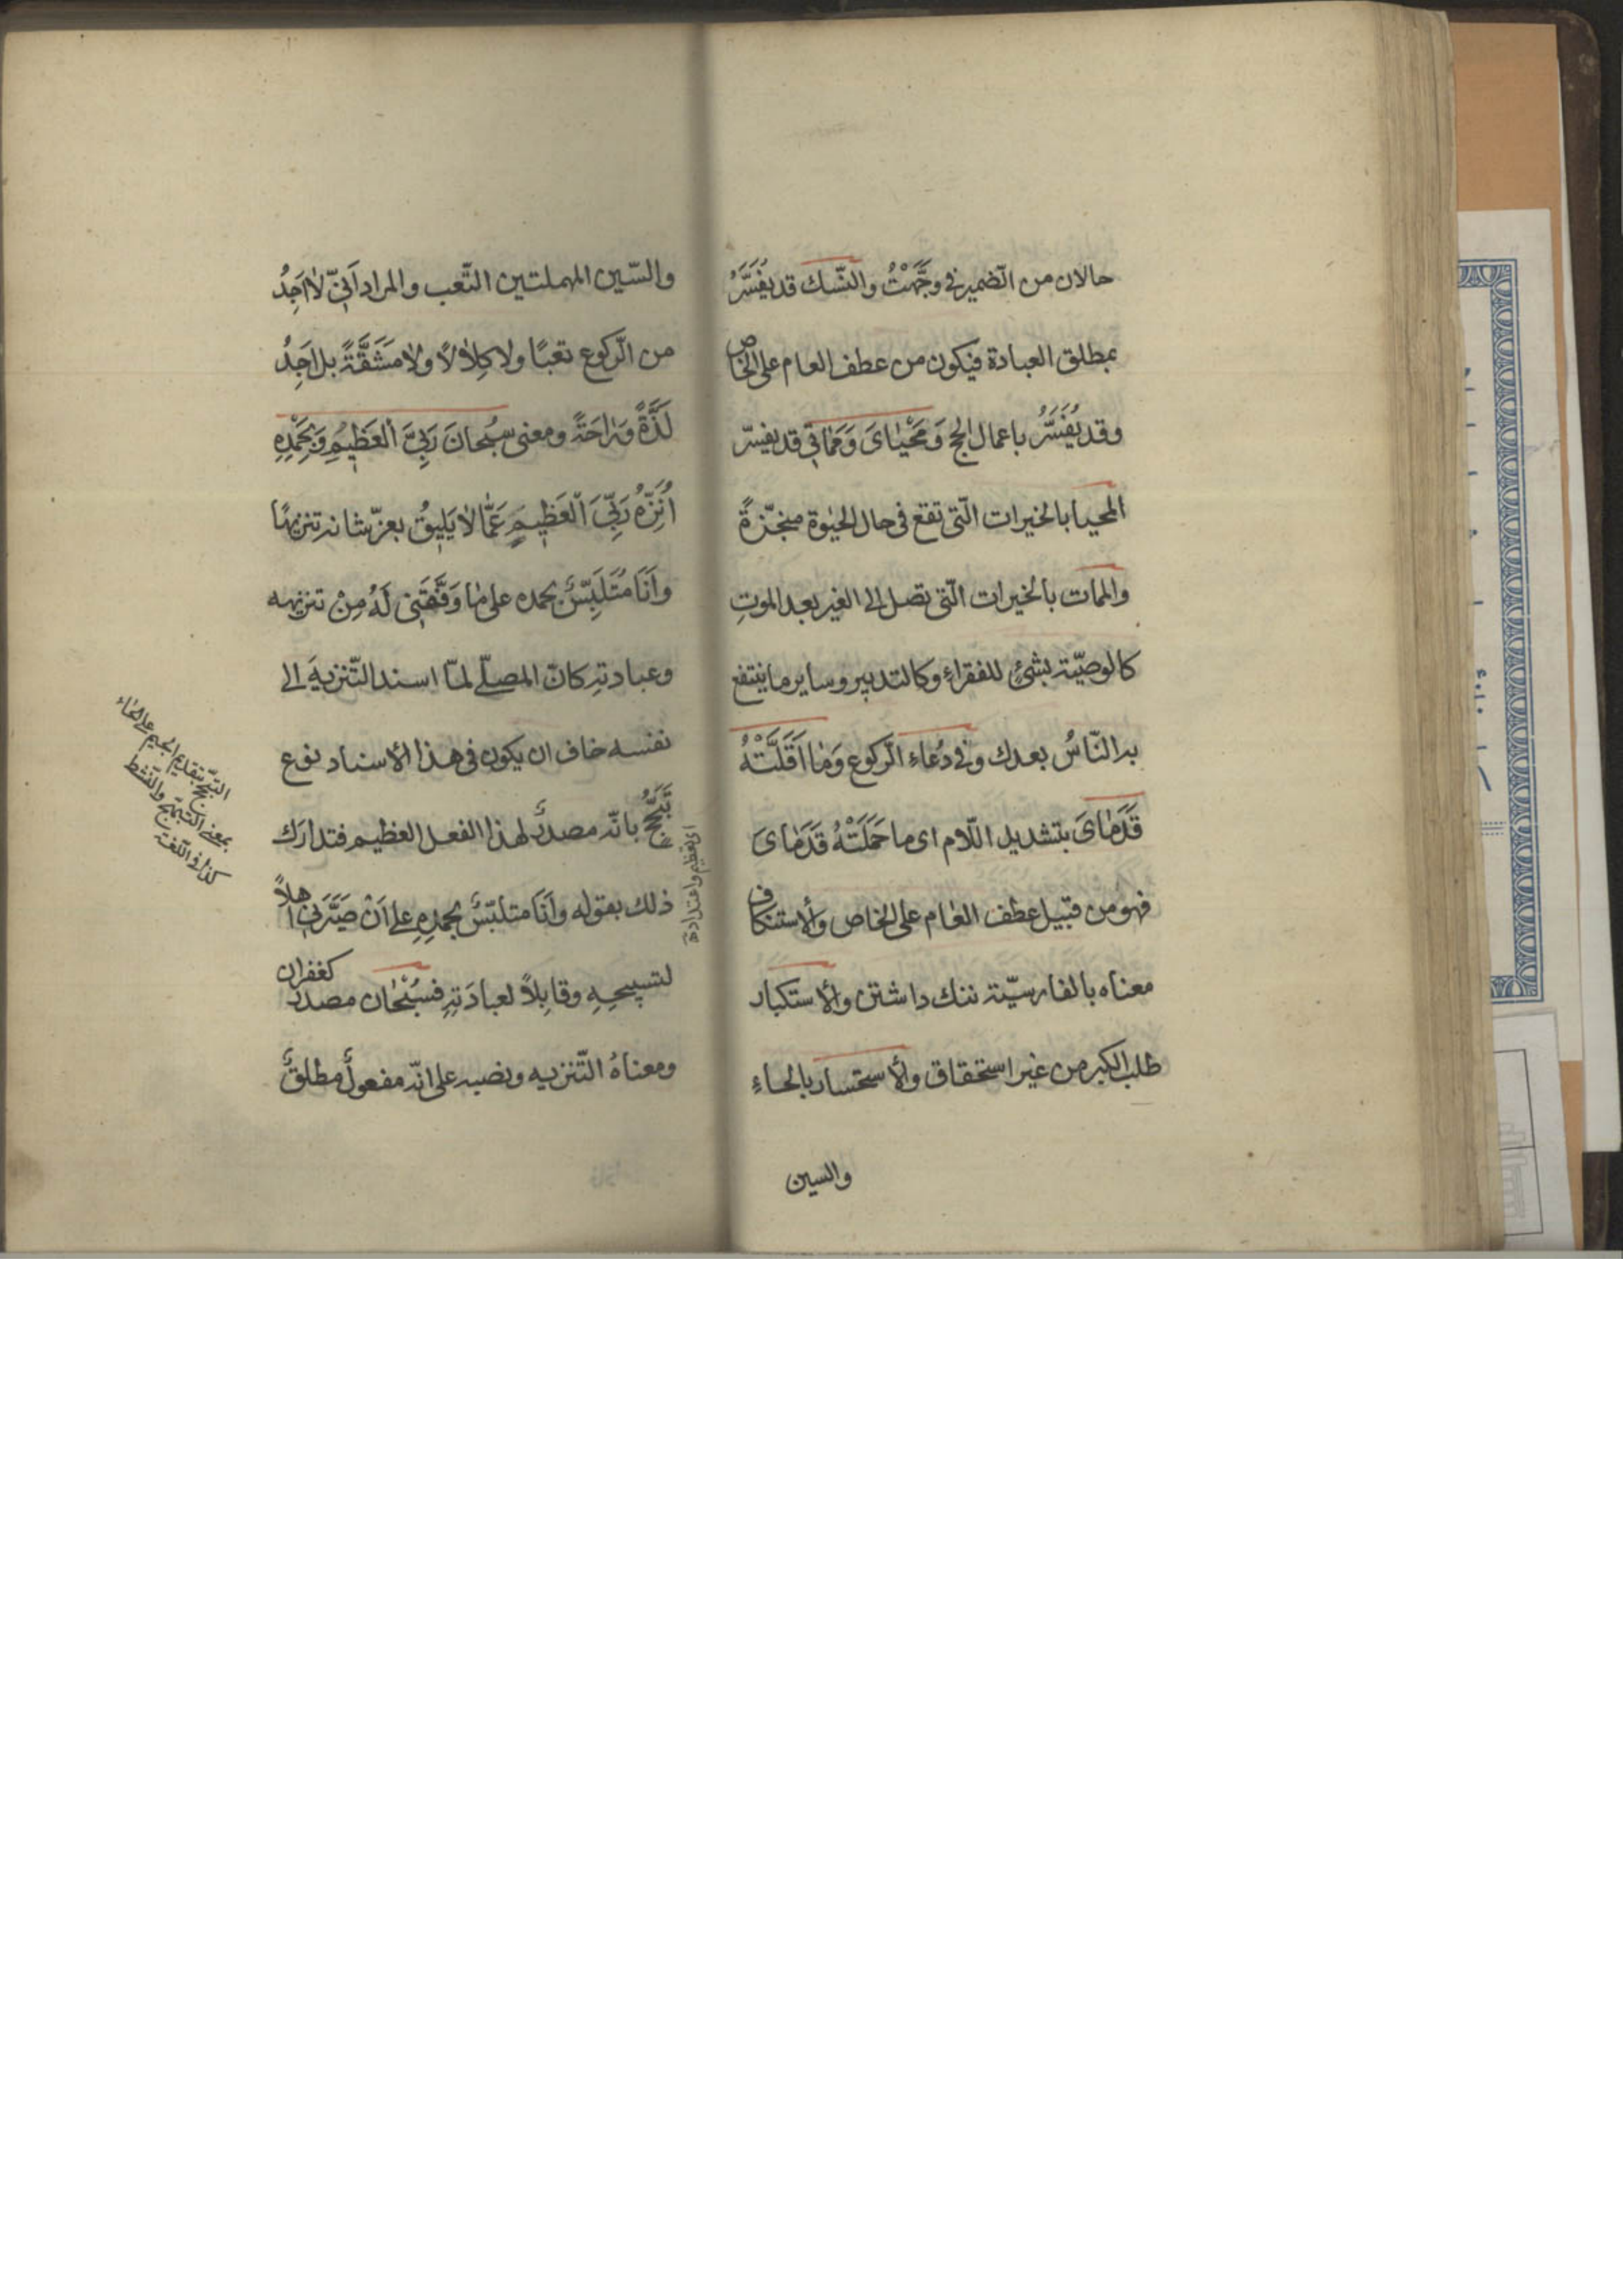 حالان من الضمير في وجَّهْتُ والنّسك قد يُفَسَّرُ
بمطلق العبادة فيكون من عطف العام على الخاص
وقد يُفَسَّرُ باعمال الحج وَمَحْيٰاىَ وَمَمٰاتي قد يفسّر
المحيا بالخيرات الّتى تقع فى حال الحيٰوة منجّزةً
والممات بالخيرات الّتى تصل الى الغير بعد الموتِ
كالوصيّة بشئٍ للفقراءِ وكالتدبير وساير ما ينتفع
به النّاسُ بعدك وفي دُعاءِ الرّكوع وَمٰا اَقَلَّتْهُ
قَدَمٰاىَ بتشديد اللّام اى ما حَمَلَتْهُ قَدَمٰاىَ
فهو من قبيل عطف العٰام على الخاص والاستنكاف
معناه بالفارسيّة ننك داشتن والاستكبار
طلب الكبر من غير استحقاق والاستحسار بالحاءِ
والسين
والسّين المهملتين التّعب والمراد اَنّي لاٰ اَجِدُ
من الرّكوع تعبًا ولا كِلاٰلاً ولاٰ مَشَقَّةً بل اَجِدُ
لَذَّةً وَرٰاحَةً ومعنى سُبْحانَ رَبِّيَ الْعَظيٖمِ وَبِحَمْدِهِ
اُنَزِّهُ رَبِّيَ الْعَظيٖمَ عَمّٰا لاٰ يَليٖقُ بعزّ شانه تنزيهًا
وَاَنَا مُتَلَبِّسٌ بحمده على مٰا وَفَّقَنى لَهُ مِنْ تنزيهه
وعبادتهِ كانّ المصلّى لمّا اسند التّنزيهَ الى
نفسه خاف ان يكون فى هذا الاسناد نوع
تَبَجُّحٍ بانّه مصدرٌ لهذا الفعل العظيم فتدارَك
ذلك بقوله وَاَنَا متلبّسٌ بحمدِهِ على اَنْ صَيَّرَنى اهلاً
لتسبيحِهِ وقابِلاً لعبادَتِهِ فسُبْحٰان مصدر كغفران
ومعناهُ التّنزيه ونصبه على انّه مفعولٌ مطلقٌ
التّبجّح بتقديم الجيم على الحاء
بمعنى التبهّج والنّشط
كذا فى اللّغة